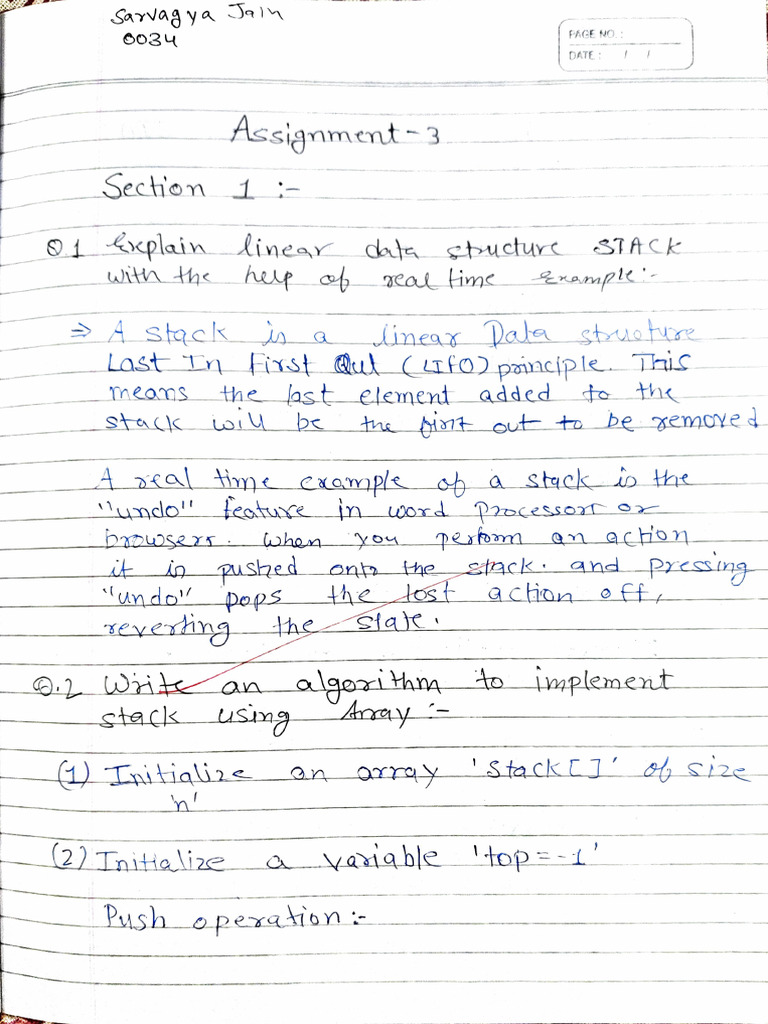 Sarvagya Jain
0034
PAGE NO. :
DATE : / /
Assignment-3
Section 1 :-
Q1 Explain linear data structure STACK
with the help of real time Example:-
⇒ A stack is a linear Data structure
Last In First Out (LIFO) principle. This
means the last element added to the
stack will be the first out to be removed
A real time example of a stack is the
"undo" feature in word processors or
browsers. When you perform an action
it is pushed onto the stack. and pressing
"undo" pops the last action off,
reverting the state.
Q.2 Write an algorithm to implement
stack using Array :-
(1) Initialize an array 'stack[]' of size
'n'
(2) Initialize a variable 'top=-1'
Push operation :-